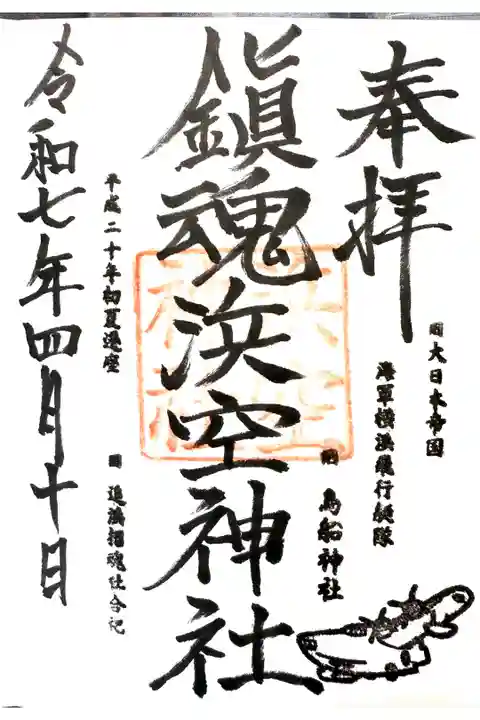 奉拝
大日本帝国
海軍横浜飛行艇隊
鳥船神社
鎮魂浜空神社
平成二十年初夏遷座
追浜招魂社合祀
令和七年四月十日